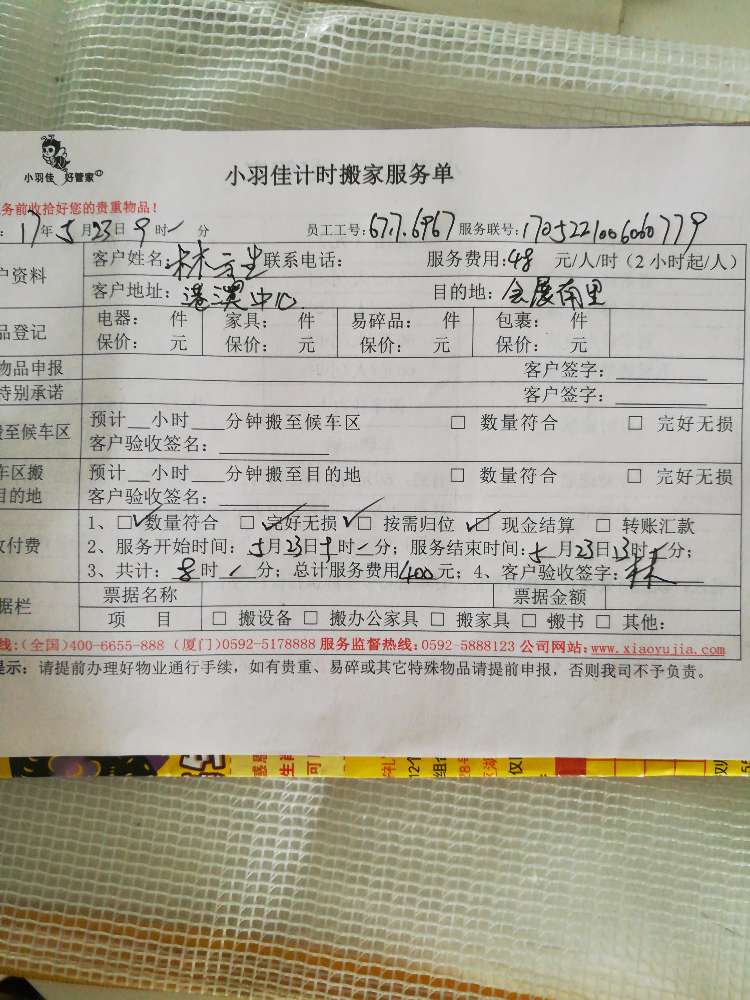 小羽佳 好管家
小羽佳计时搬家服务单
务前收拾好您的贵重物品！
: 17年5月23日9时/分 员工工号:6717.6967 服务联号:1705221006060779
户资料 客户姓名:林先生 联系电话: 服务费用:48 元/人/时（2小时起/人）
客户地址:港澳中心 目的地:会展南里
品登记 电器: 件 家具: 件 易碎品: 件 包裹: 件
保价: 元 保价: 元 保价: 元 保价: 元
物品申报 客户签字:
特别承诺 客户签字:
搬至候车区 预计__小时___分钟搬至候车区 □ 数量符合 □ 完好无损
客户验收签名:
车区搬 预计__小时___分钟搬至目的地 □ 数量符合 □ 完好无损
目的地 客户验收签名:
1、□数量符合 □ 完好无损 □ 按需归位 □ 现金结算 □ 转账汇款
付费 2、服务开始时间: 5月23日9时/分; 服务结束时间:5月23日13时/分;
3、共计: 8时/分; 总计服务费用400元; 4、客户验收签字:林
据栏 票据名称 票据金额
项 目 □ 搬设备 □ 搬办公家具 □ 搬家具 □ 搬书 □ 其他:
线:(全国)400-6655-888 (厦门)0592-5178888 服务监督热线:0592-5888123 公司网站:www.xiaoyujia.com
提示: 请提前办理好物业通行手续，如有贵重、易碎或其它特殊物品请提前申报，否则我司不予负责。